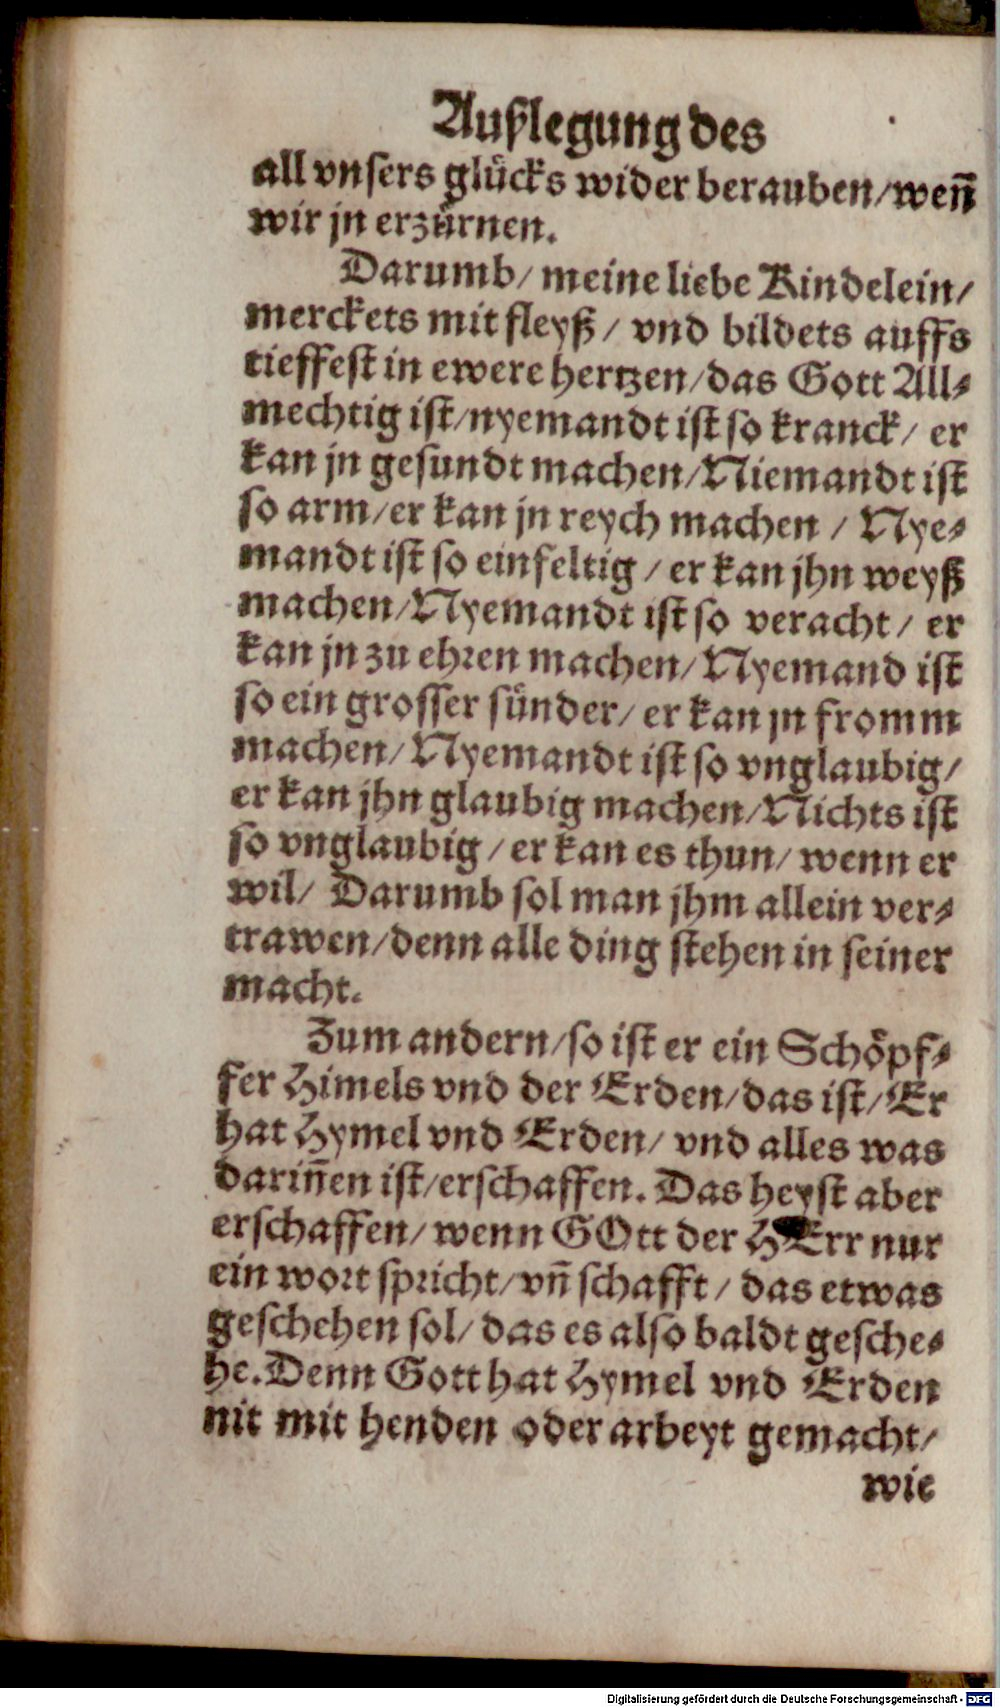 Außlegung des
all vnsers glücks wider berauben/ wen̄
wir jn erzürnen.
Darumb/ meine liebe Kindelein/
merckets mit fleyß/ vnd bildets auffs
tieffest in ewere hertzen/ das Gott All-
mechtig ist/ nyemandt ist so kranck/ er
kan jn gesundt machen/ Niemandt ist
so arm/ er kan jn reych machen/ Nye-
mandt ist so einfeltig/ er kan jhn weyß
machen/ Nyemandt ist so veracht/ er
kan jn zu ehren machen/ Nyemand ist
so ein grosser sünder/ er kan jn fromm
machen/ Nyemandt ist so vnglaubig/
er kan jhn glaubig machen/ Nichts ist
so vnglaubig/ er kan es thun/ wenn er
wil/ Darumb sol man jhm allein ver-
trawen/ denn alle ding stehen in seiner
macht.
Zum andern/ so ist er ein Schöpf-
fer Himels vnd der Erden/ das ist/ Er
hat Hymel vnd Erden/ vnd alles was
darin̄en ist/ erschaffen. Das heyst aber
erschaffen/ wenn GOtt der HErr nur
ein wort spricht/ vn̄ schafft/ das etwas
geschehen sol/ das es also baldt gesche-
he. Denn Gott hat Hymel vnd Erden
nit mit henden oder arbeyt gemacht/
wie
Digitalisierung gefördert durch die Deutsche Forschungsgemeinschaft - DFG